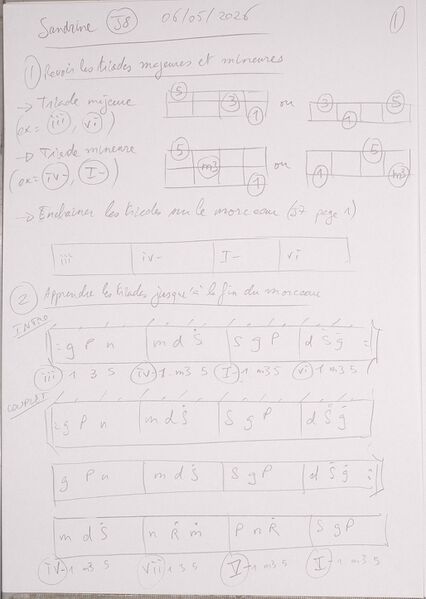 Sandrine S8 06/05/2026 1
1 Revoir les triades majeures et mineures
→ Triade majeure 5 3 1 ou 3 1 5
(ex = iii, vi)
→ Triade mineure 5 m3 1 ou 1 5 m3
(ex = iv-, I-)
→ Enchainer les triades sur le morceau (S7 page 1)
iii iv- I- vi
2 Apprendre les triades jusqu'à la fin du morceau
INTRO
g P n m d Ṡ S g P d Ṡ ġ
iii 1 3 5 iv- 1 m3 5 I- 1 m3 5 vi 1 m3 5
COUPLET
g P n m d Ṡ S g P d Ṡ ġ
g P n m d Ṡ S g P d Ṡ ġ
m d Ṡ n Ṙ ṁ P n Ṙ S g P
iv- 1 m3 5 vii 1 3 5 V- 1 m3 5 I- 1 m3 5